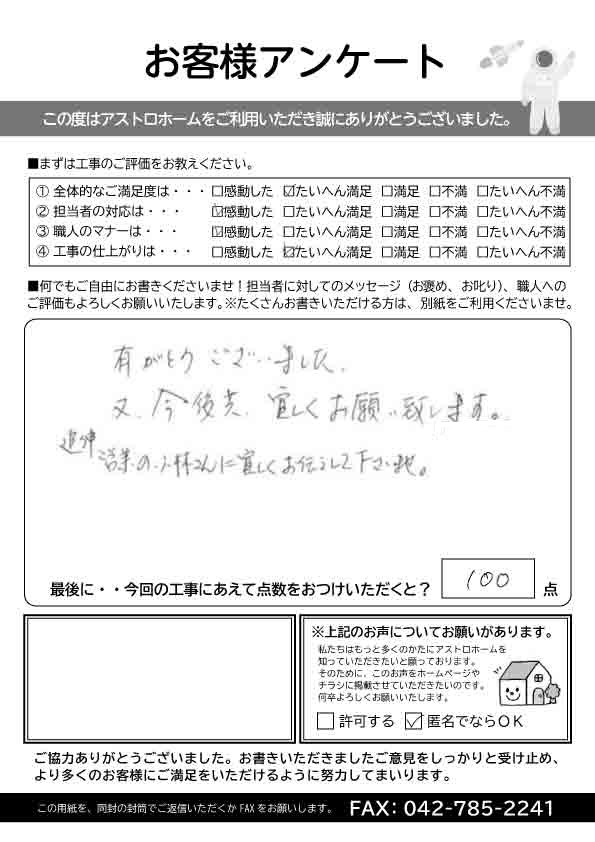 お客様アンケート
この度はアストロホームをご利用いただき誠にありがとうございました。
■まずは工事のご評価をお教えください。
① 全体的なご満足度は・・・ □感動した ☑たいへん満足 □満足 □不満 □たいへん不満
② 担当者の対応は・・・ ☑感動した □たいへん満足 □満足 □不満 □たいへん不満
③ 職人のマナーは・・・ ☑感動した □たいへん満足 □満足 □不満 □たいへん不満
④ 工事の仕上がりは・・・ □感動した ☑たいへん満足 □満足 □不満 □たいへん不満
■何でもご自由にお書きくださいませ！担当者に対してのメッセージ（お褒め、お叱り）、職人への
ご評価もよろしくお願いいたします。※たくさんお書きいただける方は、別紙をご利用くださいませ。
有がとうございました。
又、今後共、宜しくお願い致します。
追伸 営業の小林さんに宜しくお伝えして下さいませ。
最後に・・今回の工事にあえて点数をおつけいただくと？ 100 点
※上記のお声についてお願いがあります。
私たちはもっと多くのかたにアストロホームを
知っていただきたいと願っております。
そのために、このお声をホームページや
チラシに掲載させていただきたいのです。
何卒よろしくお願いします。
□ 許可する ☑ 匿名でならＯＫ
ご協力ありがとうございました。お書きいただきましたご意見をしっかりと受け止め、
より多くのお客様にご満足をいただけるように努力してまいります。
この用紙を、同封の封筒でご返信いただくか FAX をお願いします。 FAX: 042-785-2241